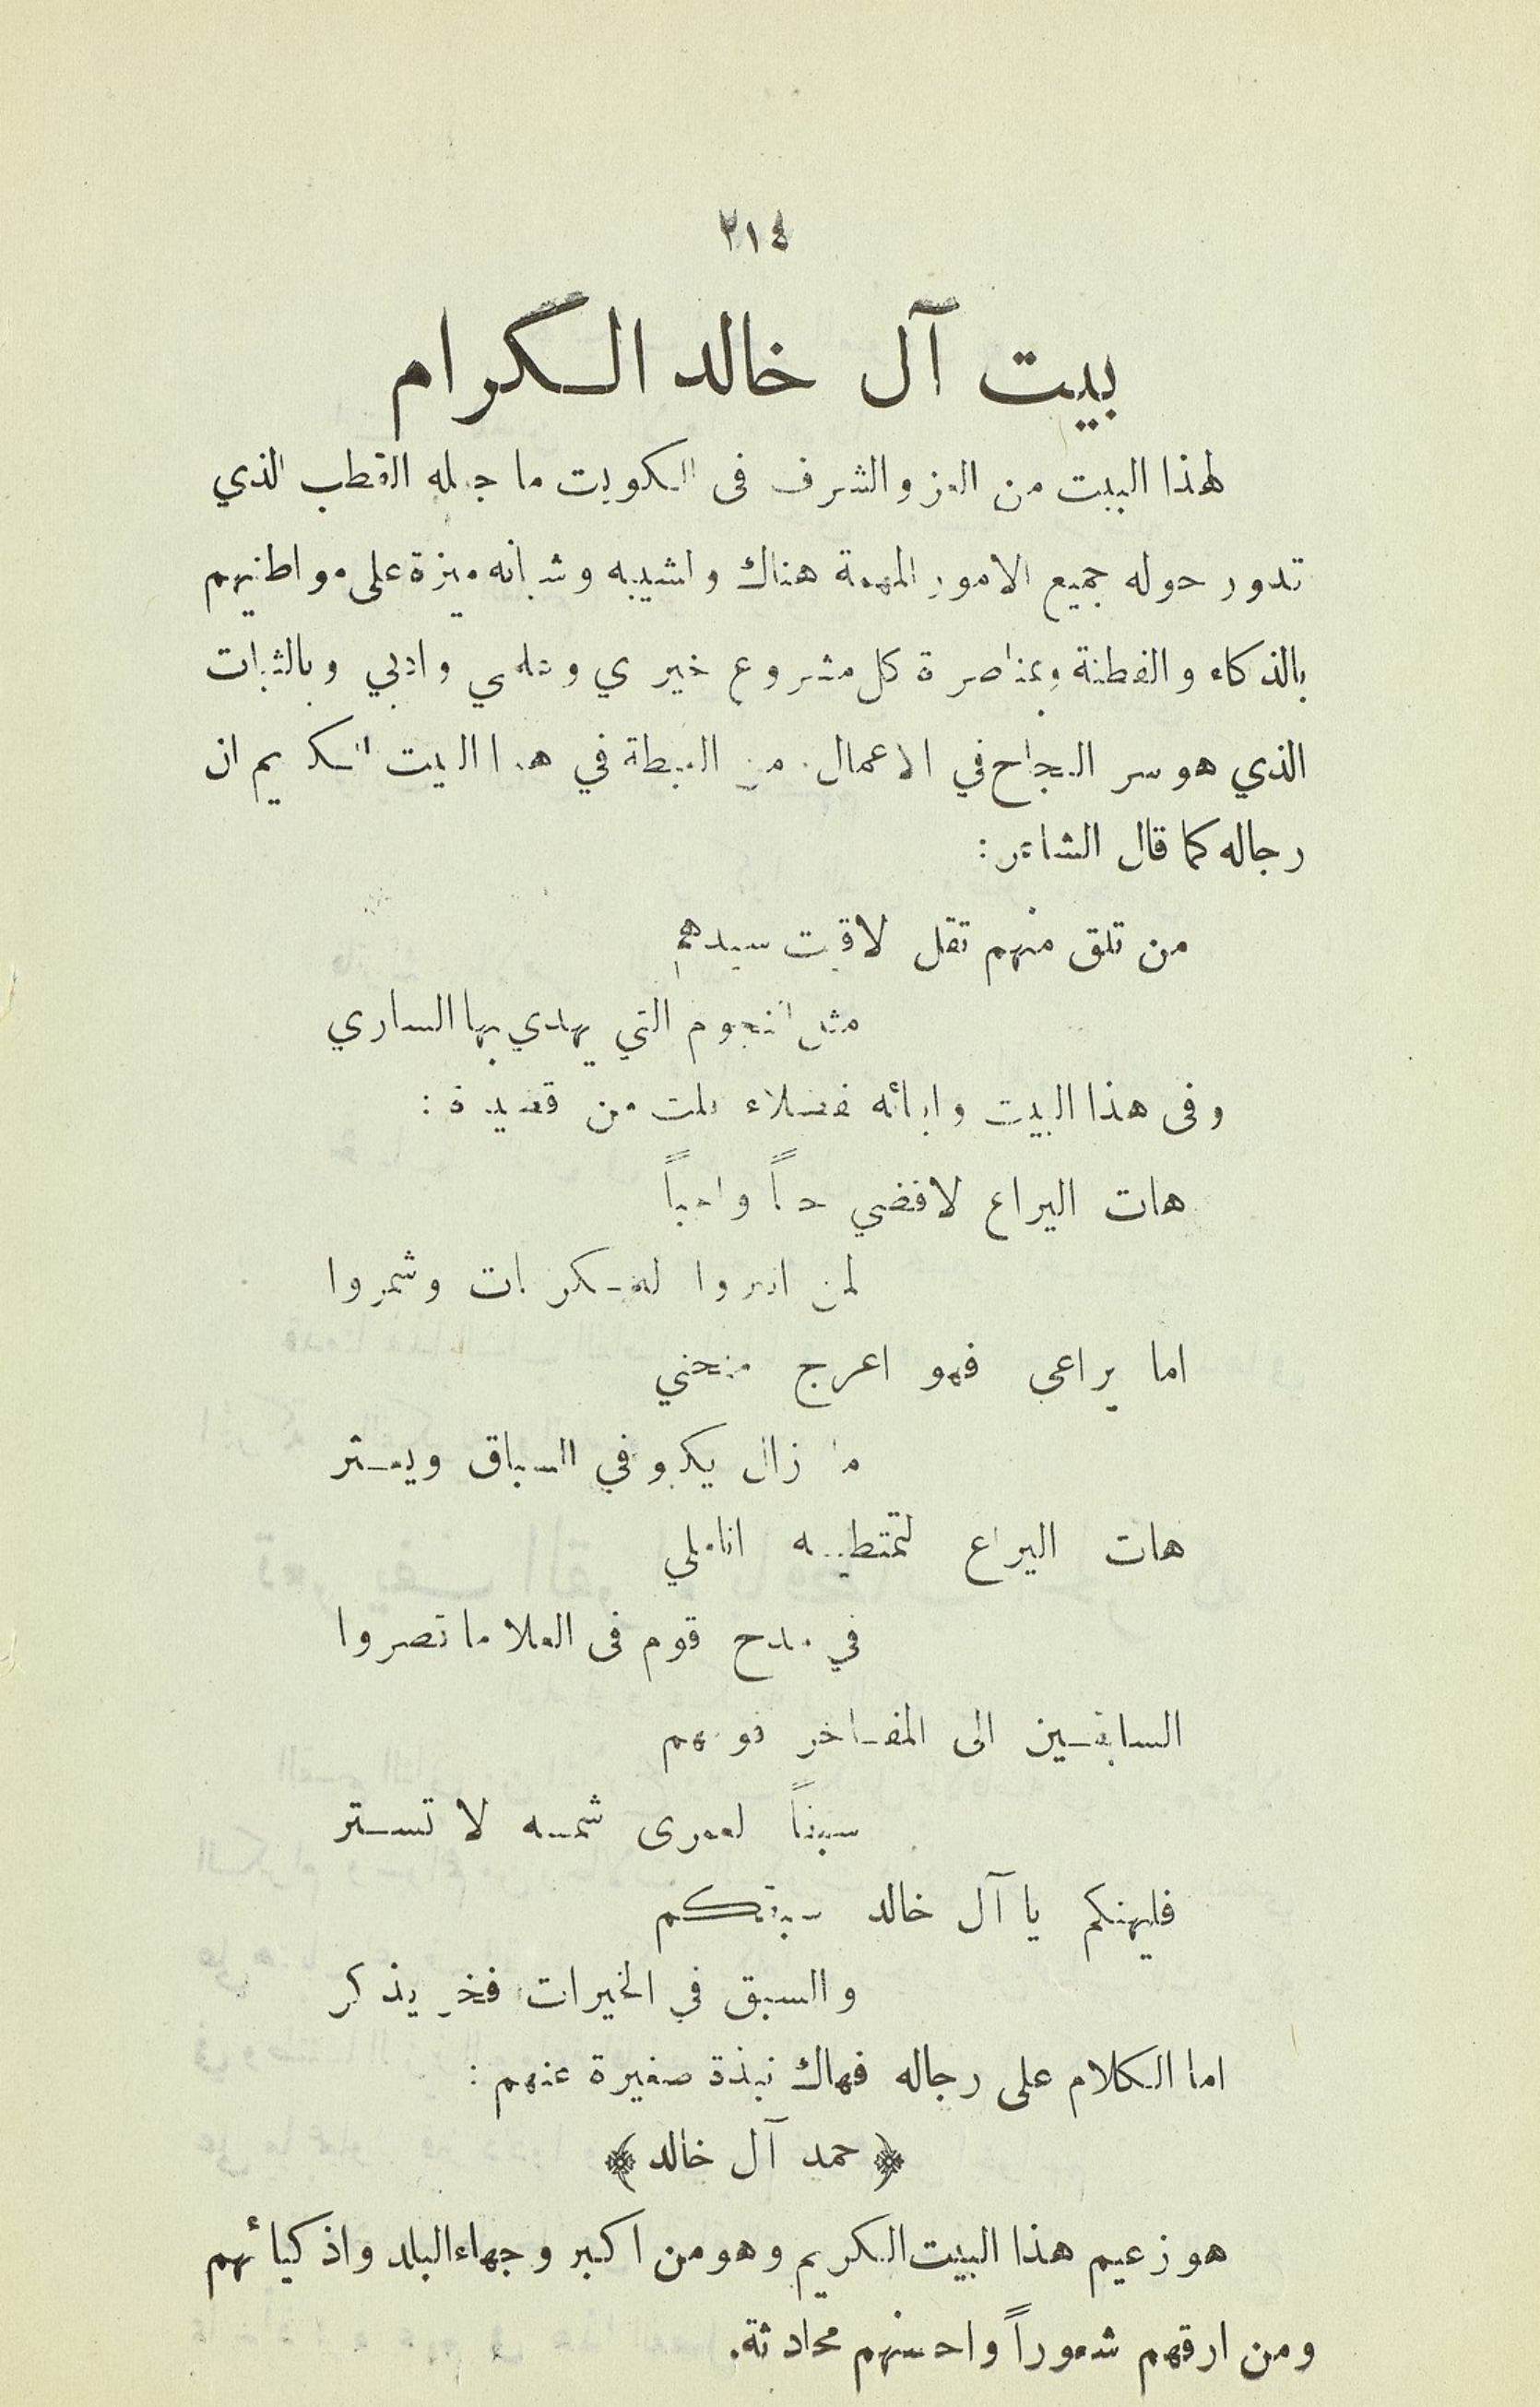 ٢١٤
بيت آل خالد الكرام
لهذا البيت من العز والشرف فى الكويت ما جعله القطب الذي
تدور حوله جميع الامور المهمة هناك ولشيبه وشبانه ميزة على مواطنيهم
بالذكاء والفطنة وبمناصرة كل مشروع خيري وعلمي وادبي وبالثبات
الذي هو سر النجاح في الاعمال. من الغبطة في هذا البيت الكريم ان
رجاله كما قال الشاعر :
من تلق منهم تقل لاقيت سيدهم
مثل النجوم التي يهدي بها الساري
وفى هذا البيت وابنائه فضلاء قلت من قصيدة :
هات اليراع لاقضي حقاً واجباً
لمن انبروا للمكرمات وشمروا
اما يراعى فهو اعرج منحني
ما زال يكبو في السباق ويعثر
هات اليراع لتمتطيه اناملي
في مدح قوم فى العلا ما قصروا
السابقين الى المفاخر قومهم
سبقاً لعمرى شمسه لا تستر
فليهنكم يا آل خالد سبقكم
والسبق في الخيرات فخر يذكر
اما الكلام على رجاله فهاك نبذة صغيرة عنهم :
﴿ حمد آل خالد ﴾
هو زعيم هذا البيت الكريم وهو من اكبر وجهاء البلد واذكيائهم
ومن ارقهم شعوراً واحسنهم محادثة.